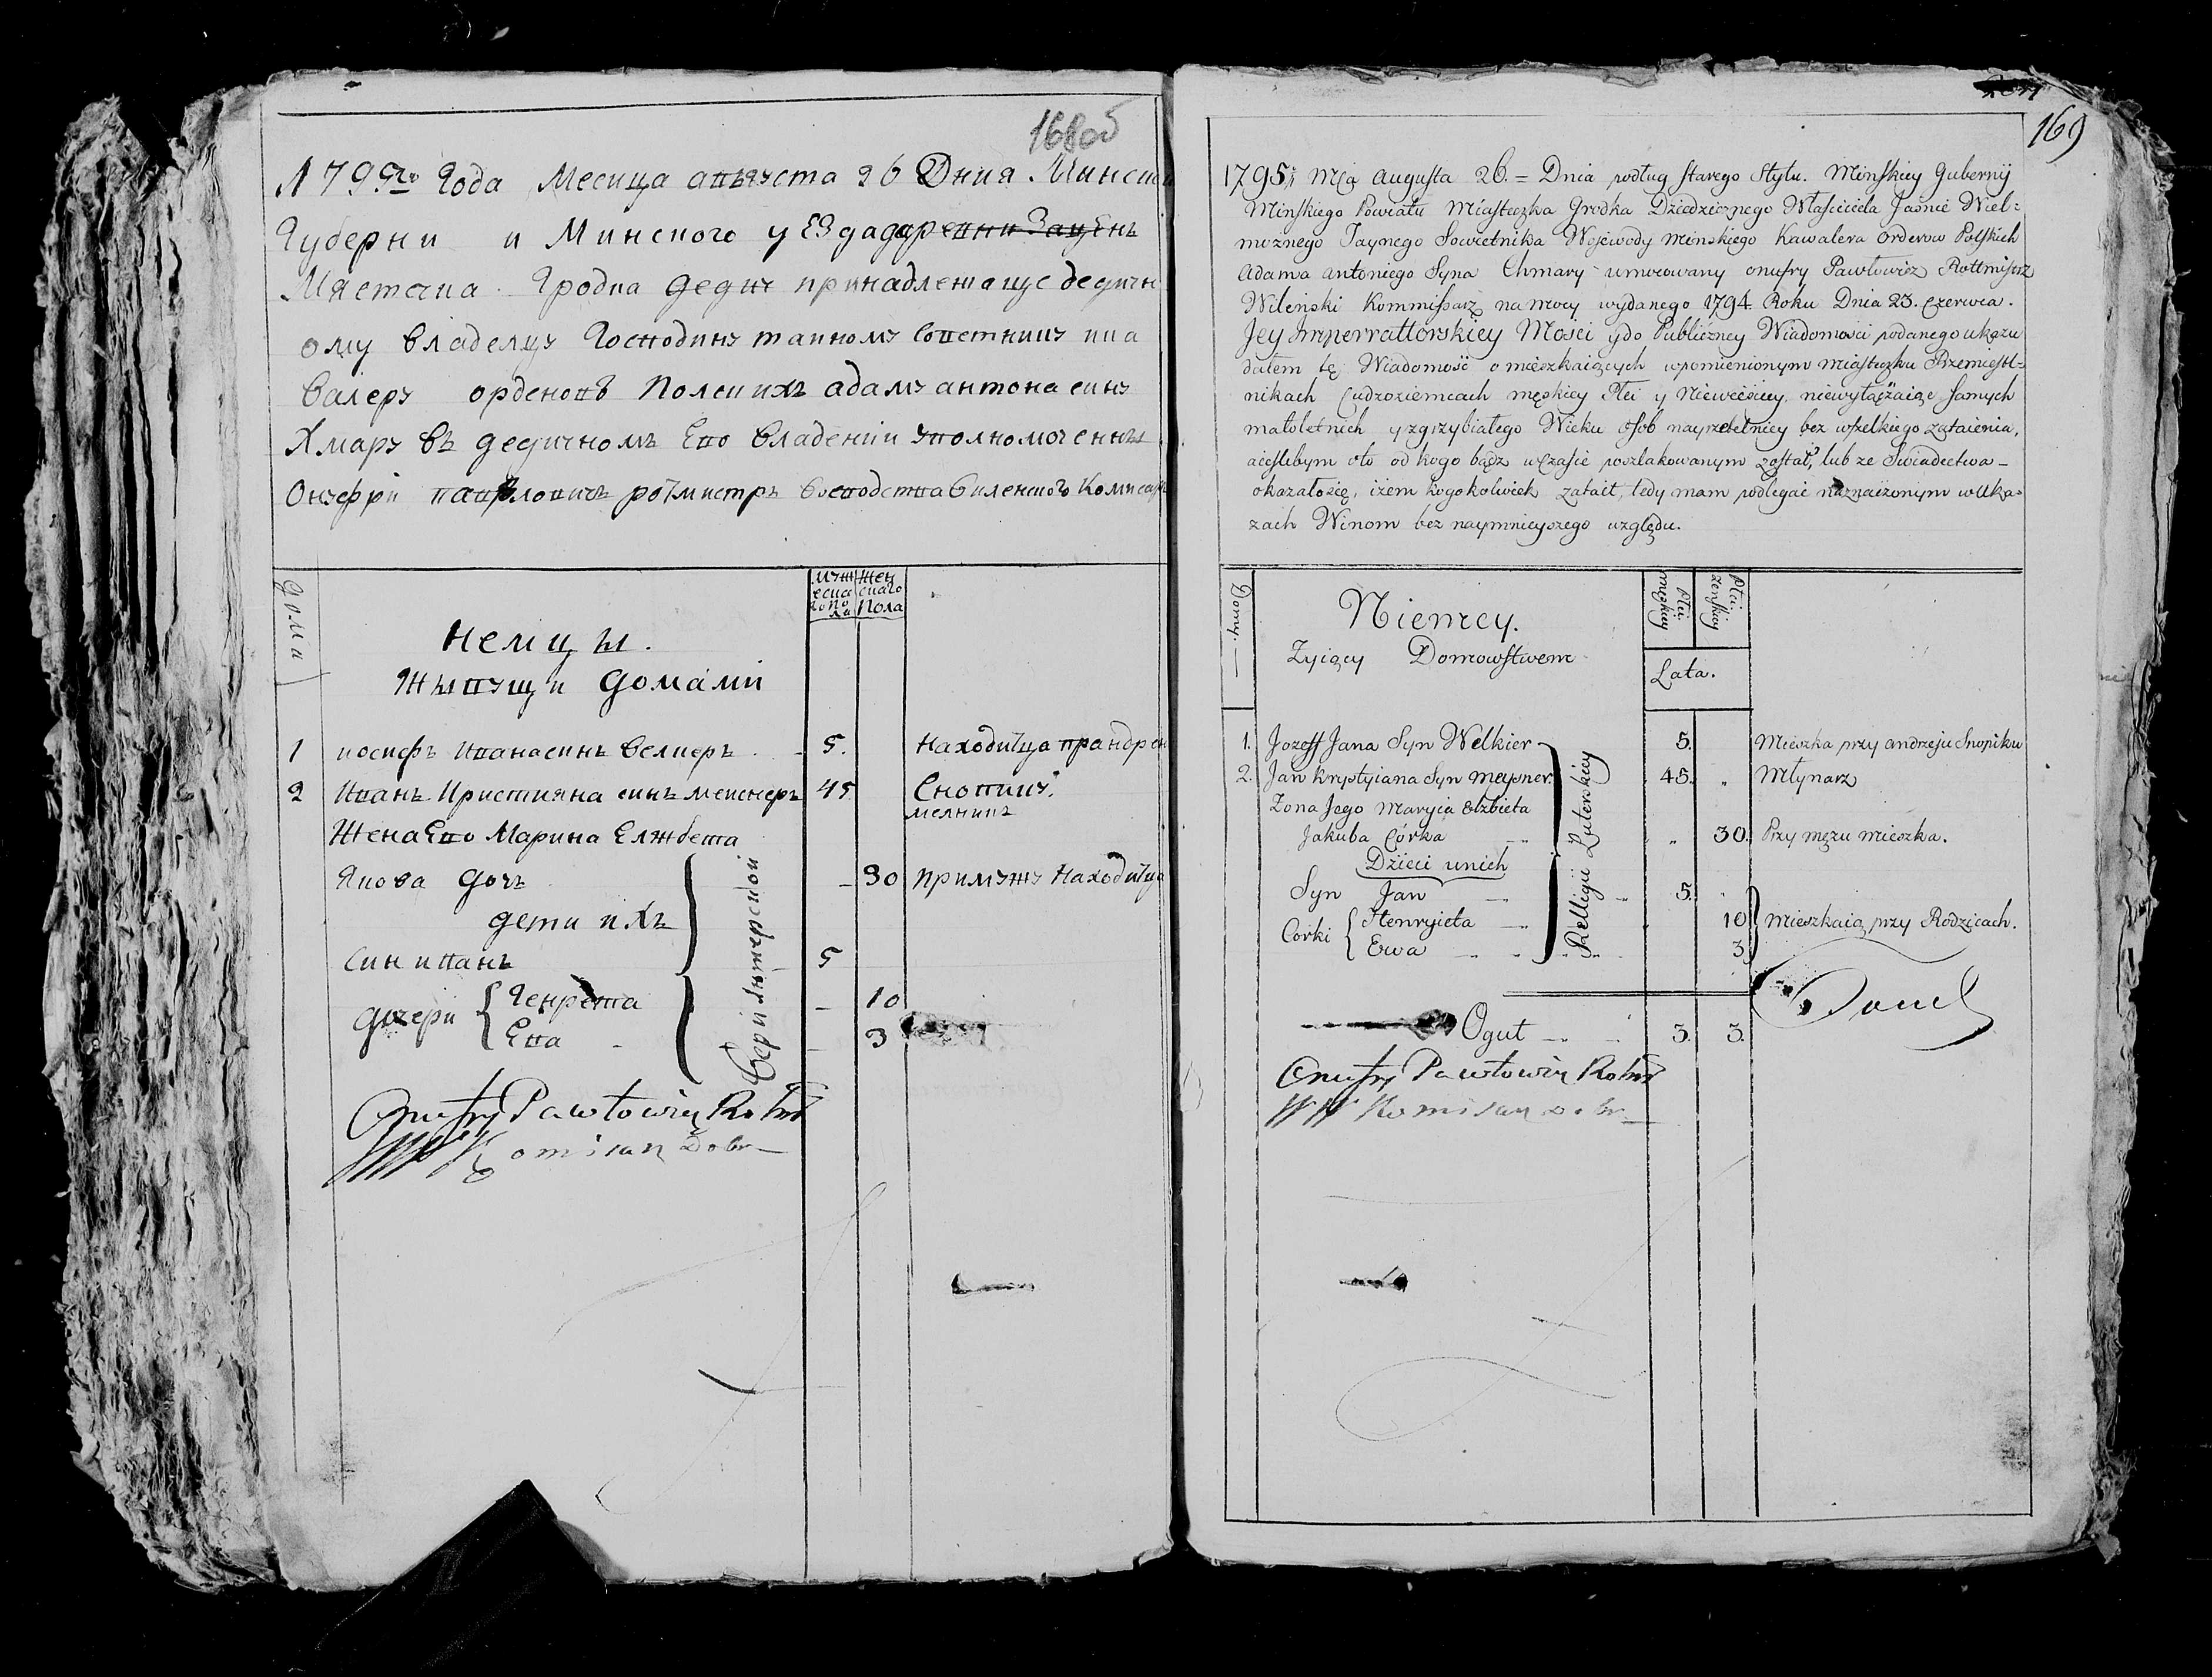 168об
1795го Года Месяца августа 26 Дния Минской
Губерни и Минского уЕзда деревни Зацень
Мястечка Гродка дедич принадлежаще дедичн
ому владелцу Господину таиному Советнику ика
валеру орденовъ Полскихъ адаму антона сину
Хмару въ дедичномъ Его владении уполномоченны
Онуфрїи павловичъ ротмистръ воеводства виленского Комисаръ
дома
мужескаго пола
женскаго пола
немцы.
Жывущи домами
1 иосифъ иванасинъ велкеръ 5. Находитца прандрею
2 Иванъ Християна синъ меиснеръ 45 Снопику
мелникъ
Жена Его Марина Елжбета
Якова дочъ 30 примужу Находитца
дети ихъ
Син иванъ 5
дочери Генрета 10
Ева 3
Вери лютерской
Onufry Pawłowicz Rotm
WW Komisarz Dobr
169
1795. Mca Augusta 26. = Dnia podług starego Stylu. Minskiey Gubernij
Minskiego Powiatu Miasteczka Grodka Dziedzicznego Własciciela Jaśnie Wiel=
możnego Taynego Sowietnika Wojewody minskiego Kawalera Orderow Polskich
Adama antoniego Syna Chmary umocowany onufry Pawłowicz Rottmistrz
Wileński Kommissarz na mocy wydanego 1794. Roku Dnia 23. Czerwca.
Jey Imperrattorskiey Mosci ydo Publiczney Wiadomosci podanego ukazu
dałem tę Wiadomość o mieszkaiących wpomienionym miasteczku Rzemiesl=
nikach Cudzoziemcach męskiey Płci y Niewiesciey, niewyłączaiąc samych
małoletnich y zgrzybiałego Wieku osob nayrzetelniey bez wszelkiego zataienia,
aieslibym oto od kogo bądz wczasie poszlakowanym został, lub ze Swiadectwa
okazałosię, iżem kogokolwiek zataił, tedy mam podlegać naznaczonym w Uka=
zach Winom bez naymnieyszego względu.
Domy.
Niemcy.
Zyiący Domowstwem
Płci męskiey
Płci zenskiey
Lata.
1. Jozeff Jana Syn Welkier 5. Mieszka przy andrzeju Snopiku
2. Jan Krystyiana Syn Meysner. 45. " Młynarz
Zona Jego Maryia Elzbieta
Jakuba Córka " 30. Przy męzu mieszka.
Dzieci unich
Syn Jan 5.
Corki Henryieta 10 mieszkaią przy Rodzicach.
Ewa 3
Relligii Luterskiey
Oguł 3. 3.
Onufry Pawłowicz Rotm
WW Komisarz Dobr